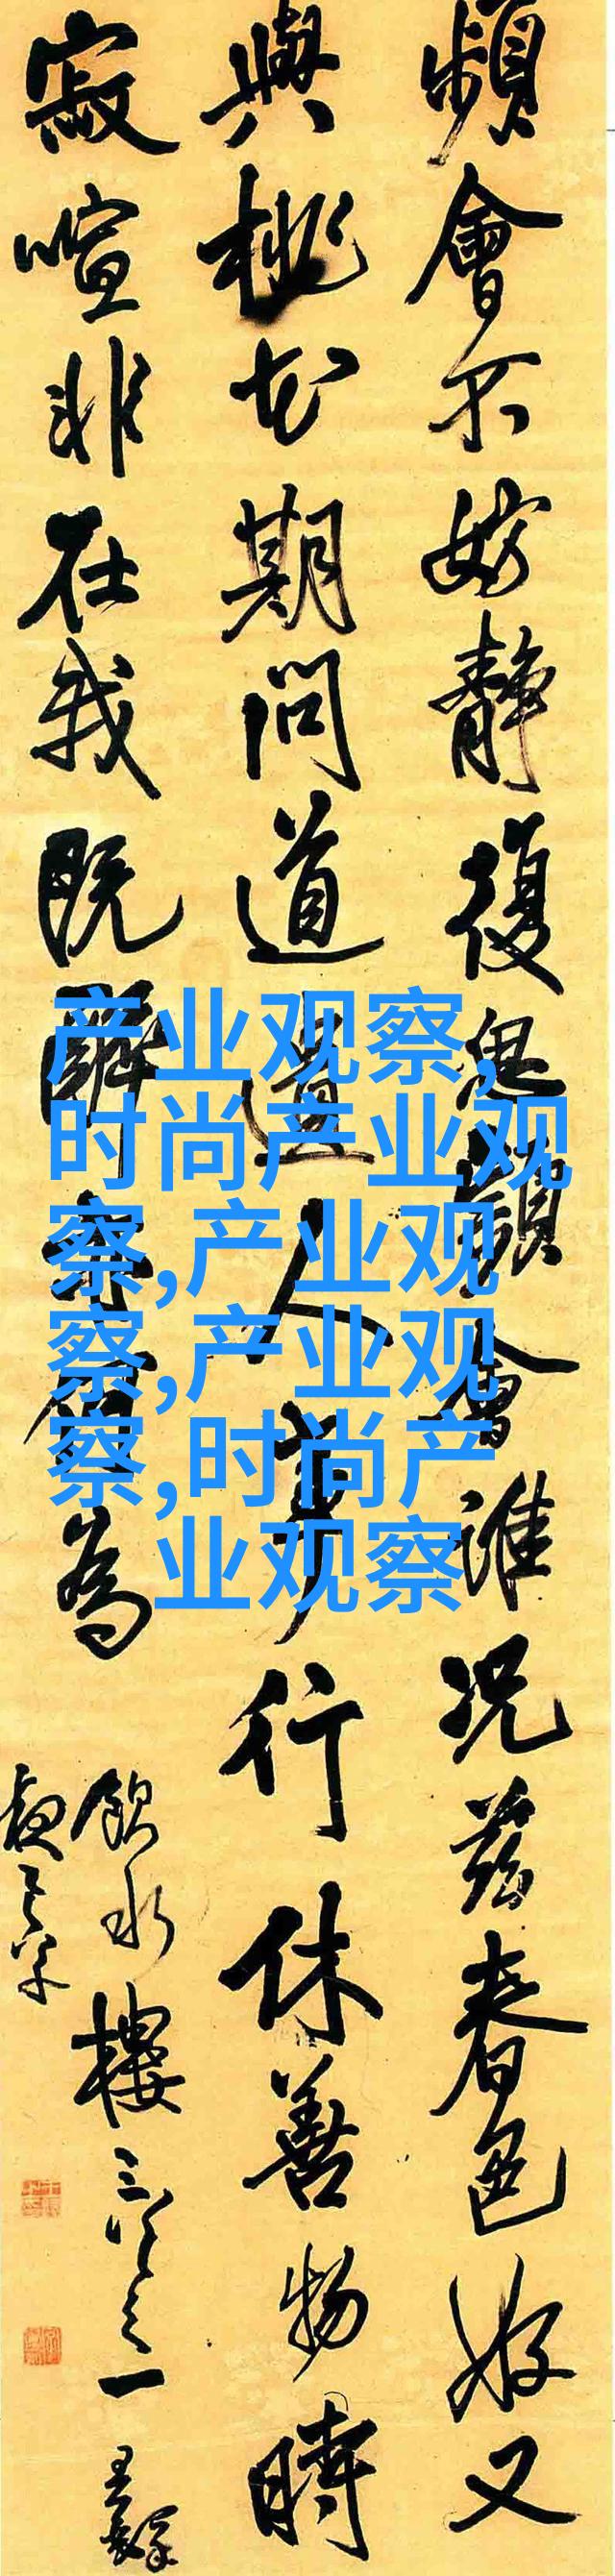 頻會不妨靜復思頻會誰況茲春色好又
與桃花期問道遺人

行休善物時
寂喧非在我既醉

為
飲水樓三首之一
王鐸
产业观察,
时尚产业观
察,产业观
察,产业观
察,时尚产
业观察